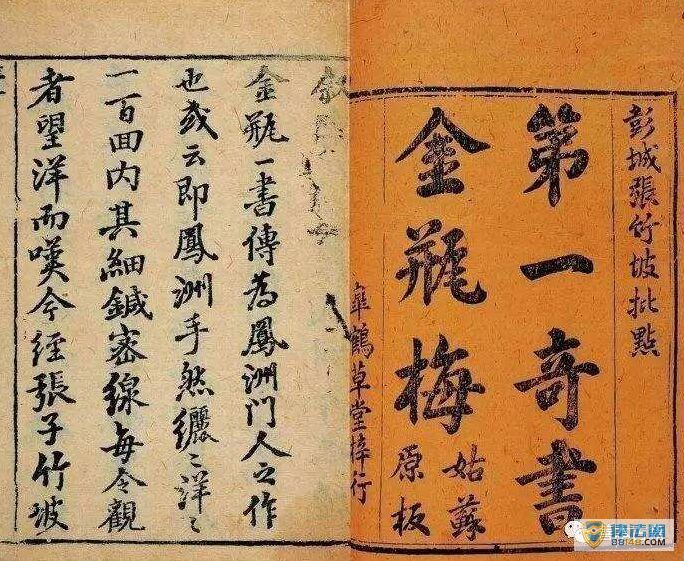 彭城張竹坡批點
第一奇書
金瓶梅
姑蘇
原板
皐鶴草堂梓行
金瓶一書傳為鳳洲門人之作
也或云即鳳洲手然纚〻洋〻
一百回内其細鍼密線每令觀
者望洋而嘆今經張子竹坡
律法网
88148.com